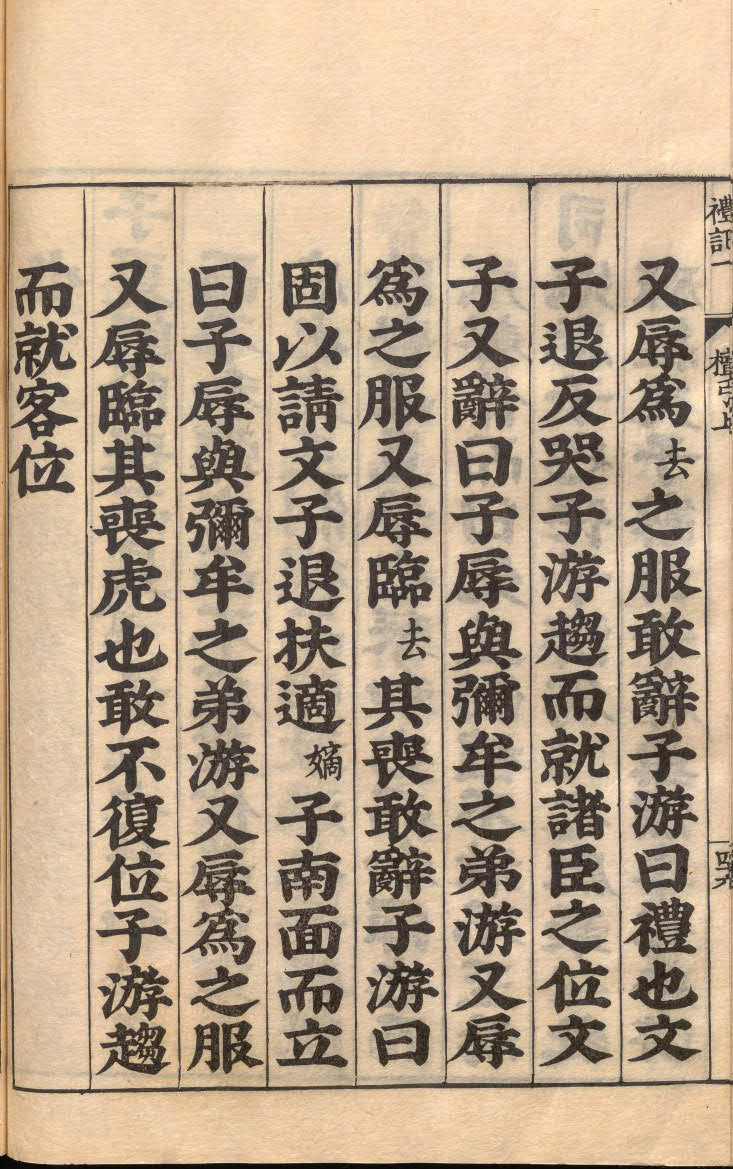 禮記一 檀弓上
又辱爲去之服敢辭子游曰禮也文
子退反哭子游趨而就諸臣之位文
子又辭曰子辱與彌牟之弟游又辱
爲之服又辱臨去其喪敢辭子游曰
固以請文子退扶適嫡子南面而立
曰子辱與彌牟之弟游又辱爲之服
又辱臨其喪虎也敢不復位子游趨
而就客位